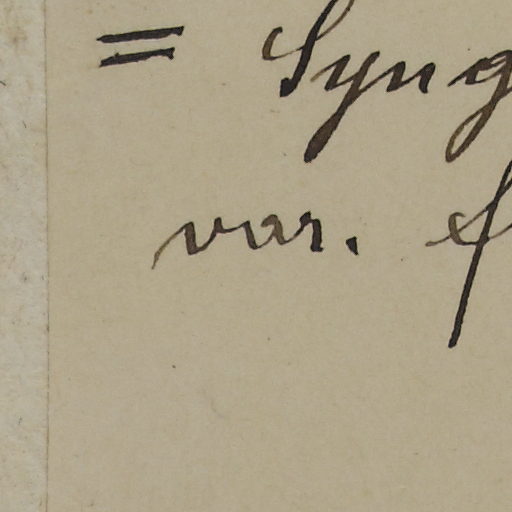 = Syng
var.